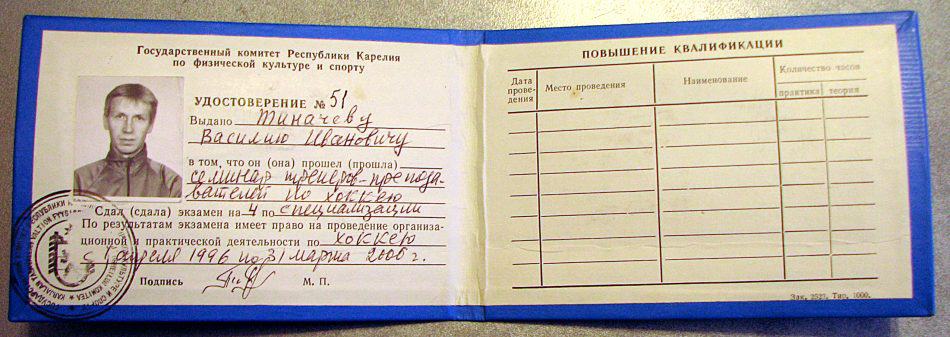 Государственный комитет Республики Карелия
по физической культуре и спорту
УДОСТОВЕРЕНИЕ № 51
Выдано Тиначеву
Василию Ивановичу
в том, что он (она) прошел (прошла)
семинар тренеров-препода-
вателей по хоккею
Сдал (сдала) экзамен на 4 по специализации
По результатам экзамена имеет право на проведение организа-
ционной и практической деятельности по хоккею
с 1 апреля 1996 по 31 марта 2000 г.
Подпись М. П.
ПОВЫШЕНИЕ КВАЛИФИКАЦИИ
Дата прове-дения
Место проведения
Наименование
Количество часов
практика теория
Зак. 2523. Тир. 1000.